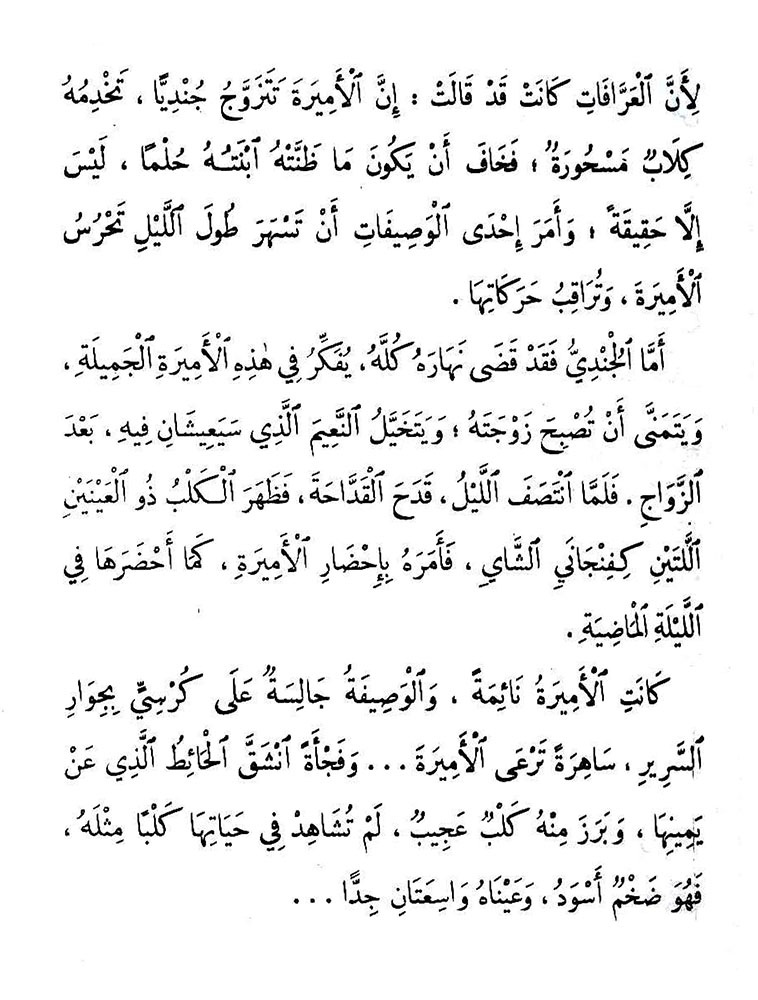 لِأَنَّ ٱلْعَرَّافَاتِ كَانَتْ قَدْ قَالَتْ : إِنَّ ٱلْأَمِيرَةَ تَتَزَوَّجُ جُنْدِيًّا ، تَخْدِمُهُ
كِلَابٌ مَسْحُورَةٌ ؛ فَخَافَ أَنْ يَكُونَ مَا ظَنَّتْهُ ٱبْنَتُهُ حُلْمًا ، لَيْسَ
إِلَّا حَقِيقَةً ؛ وَأَمَرَ إِحْدَى ٱلْوَصِيفَاتِ أَنْ تَسْهَرَ طُولَ ٱللَّيْلِ تَحْرُسُ
ٱلْأَمِيرَةَ ، وَتُرَاقِبُ حَرَكَاتِهَا .
أَمَّا ٱلْجُنْدِيُّ فَقَدْ قَضَى نَهَارَهُ كُلَّهُ ، يُفَكِّرُ فِي هٰذِهِ ٱلْأَمِيرَةِ ٱلْجَمِيلَةِ ،
وَيَتَمَنَّى أَنْ تُصْبِحَ زَوْجَتَهُ ؛ وَيَتَخَيَّلُ ٱلنَّعِيمَ ٱلَّذِي سَيَعِيشَانِ فِيهِ ، بَعْدَ
ٱلزَّوَاجِ . فَلَمَّا ٱنْتَصَفَ ٱللَّيْلُ ، قَدَحَ ٱلْقَدَّاحَةَ ، فَظَهَرَ ٱلْكَلْبُ ذُو ٱلْعَيْنَيْنِ
ٱللَّتَيْنِ كَفِنْجَانَيِ ٱلشَّايِ ، فَأَمَرَهُ بِإِحْضَارِ ٱلْأَمِيرَةِ ، كَمَا أَحْضَرَهَا فِي
ٱللَّيْلَةِ ٱلْمَاضِيَةِ .
كَانَتِ ٱلْأَمِيرَةُ نَائِمَةً ، وَٱلْوَصِيفَةُ جَالِسَةٌ عَلَى كُرْسِيٍّ بِجِوَارِ
ٱلسَّرِيرِ ، سَاهِرَةً تَرْعَى ٱلْأَمِيرَةَ ... وَفَجْأَةً ٱنْشَقَّ ٱلْحَائِطُ ٱلَّذِي عَنْ
يَمِينِهَا ، وَبَرَزَ مِنْهُ كَلْبٌ عَجِيبٌ ، لَمْ تُشَاهِدْ فِي حَيَاتِهَا كَلْبًا مِثْلَهُ ،
فَهُوَ ضَخْمٌ أَسْوَدُ ، وَعَيْنَاهُ وَاسِعَتَانِ جِدًّا ...